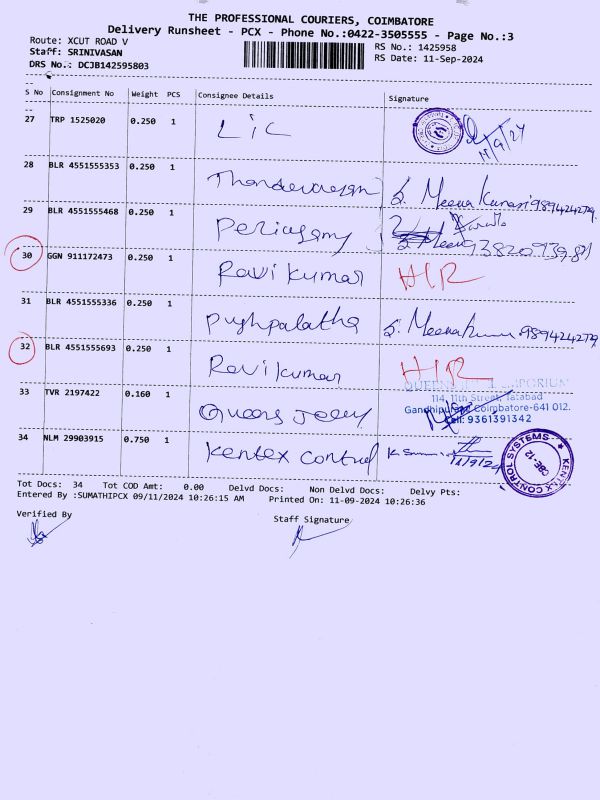 THE PROFESSIONAL COURIERS, COIMBATORE
Delivery Runsheet - PCX - Phone No.:0422-3505555 - Page No.:3
Route: XCUT ROAD V
RS No.: 1425958
Staff: SRINIVASAN
RS Date: 11-Sep-2024
DRS No.: DCJB142595803
S No Consignment No Weight PCS Consignee Details Signature
27 TRP 1525020 0.250 1 LIC 11/9/24
28 BLR 4551555353 0.250 1 S. Meena Kumari 9894244279.
29 BLR 4551555468 0.250 1 Periasamy
30 GGN 911172473 0.250 1 Ravikumar HIR
31 BLR 4551555336 0.250 1 Pushpalatha S. 9894244279
32 BLR 4551555693 0.250 1 Ravikumar HIR
114, 11th Street, Tatabad
33 TVR 2197422 0.160 1 Coimbatore-641 012.
Cell: 9361391342
34 NLM 29903915 0.750 1 Kentex Control 11/9/24
KENTEX CONTROL SYSTEMS
CBE-12
Tot Docs: 34 Tot COD Amt: 0.00 Delvd Docs: Non Delvd Docs: Delvy Pts:
Entered By :SUMATHIPCX 09/11/2024 10:26:15 AM Printed On: 11-09-2024 10:26:36
Verified By
Staff Signature